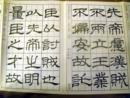 先帝慮漢賊
不兩立王業
不偏安故託
臣以討賊也
以先帝之明
量臣之才故